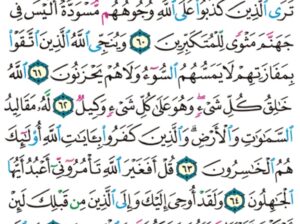 تَرَى ٱلَّذِينَ كَذَبُوا۟ عَلَى ٱللَّهِ وُجُوهُهُم مُّسْوَدَّةٌ أَلَيْسَ فِى
جَهَنَّمَ مَثْوًى لِّلْمُتَكَبِّرِينَ ٦٠ وَيُنَجِّى ٱللَّهُ ٱلَّذِينَ ٱتَّقَوْا۟
بِمَفَازَتِهِمْ لَا يَمَسُّهُمُ ٱلسُّوٓءُ وَلَا هُمْ يَحْزَنُونَ ٦١
خَٰلِقُ كُلِّ شَىْءٍ وَهُوَ عَلَىٰ كُلِّ شَىْءٍ وَكِيلٌ ٦٢ لَّهُۥ مَقَالِيدُ
ٱلسَّمَٰوَٰتِ وَٱلْأَرْضِ وَٱلَّذِينَ كَفَرُوا۟ بِـَٔايَٰتِ ٱللَّهِ أُو۟لَٰٓئِكَ
هُمُ ٱلْخَٰسِرُونَ ٦٣ قُلْ أَفَغَيْرَ ٱللَّهِ تَأْمُرُوٓنِّىٓ أَعْبُدُ أَيُّهَا
ٱلْجَٰهِلُونَ ٦٤ وَلَقَدْ أُوحِىَ إِلَيْكَ وَإِلَى ٱلَّذِينَ مِن قَبْلِكَ لَئِنْ